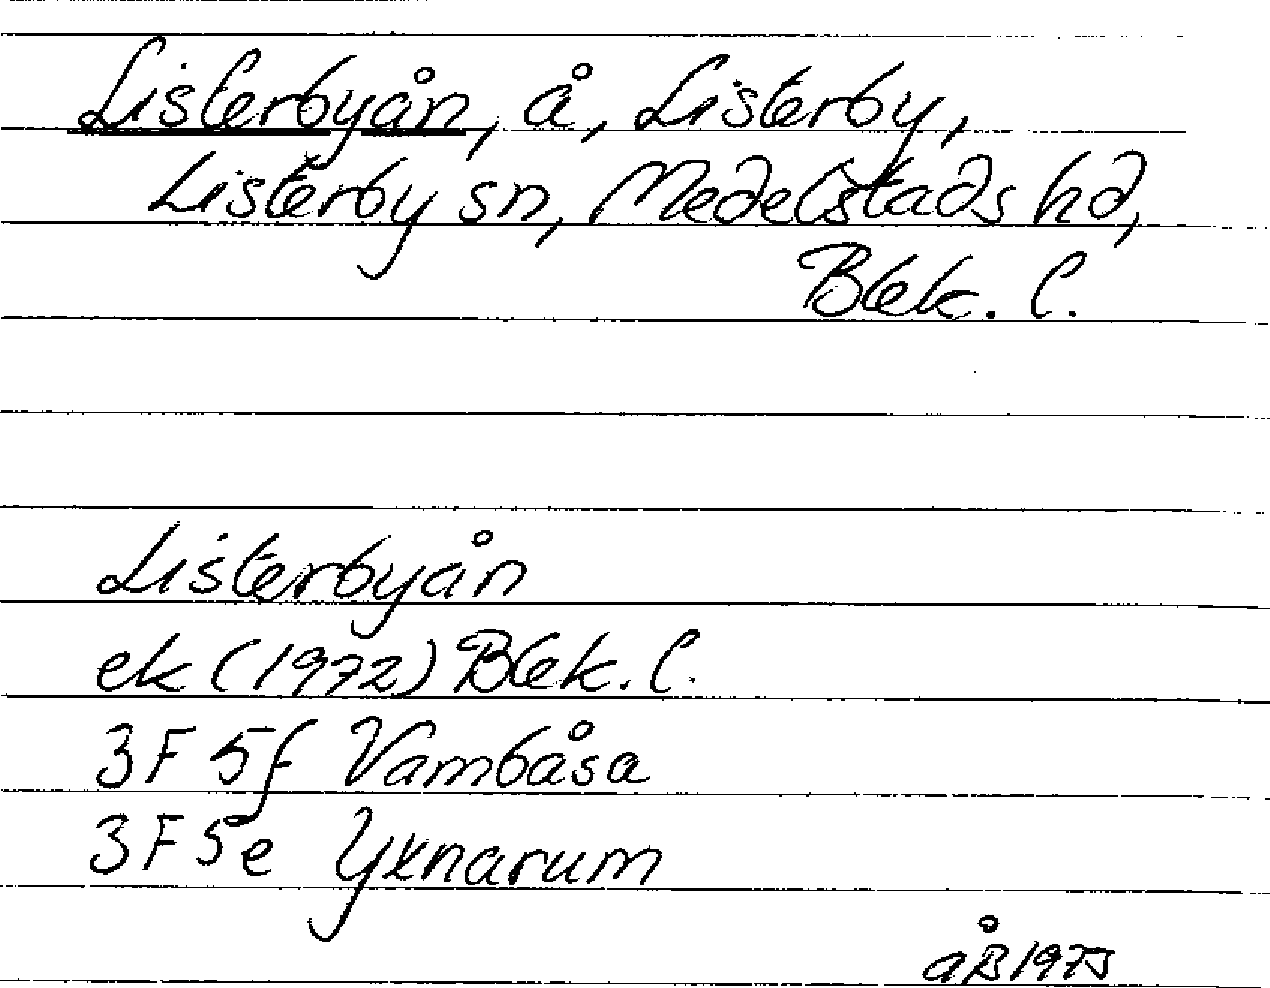 Listerbyån, å, Listerby,
Listerby sn, Medelstads hd,
Blek. l.
Listerbyån
ek (1972) Blek. l.
3F 5f Vambåsa
3F 5e Yxnarum
åB 1975